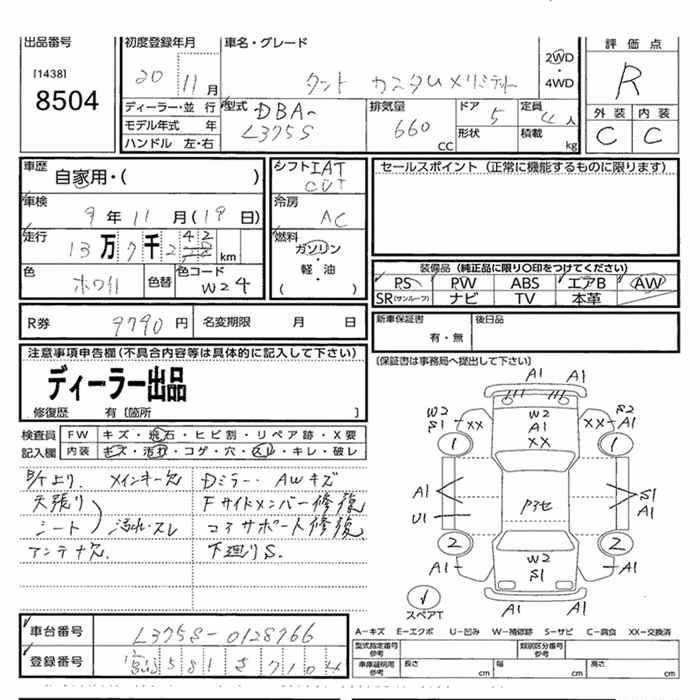 出品番号
[1438]
8504
初度登録年月 20 11月
車名・グレード タント カスタムメリミティド
2WD・4WD
評価点 R
外装 C 内装 C
ディーラー・並行
モデル年式 年
ハンドル 左・右
型式 DBA-L375S
排気量 660 CC
ドア 5
形状
定員 4人
積載 kg
車歴 自家用・( )
車検 9年11月(19日)
走行 13万7千2 42 km
色 ホワイト 色替 色コード W24
シフト IAT CVT
冷房 AC
燃料 ガソリン・軽・油( )
セールスポイント (正常に機能するものに限ります)
装備品 (純正品に限り〇印をつけてください)
PS PW ABS エアB AW
SR(サンルーフ) ナビ TV 本革
R券 9790円 名変期限 月 日
新車保証書 有・無
後日品
(保証書は事務局へ提出して下さい)
注意事項申告欄(不具合内容等は具体的に記入して下さい)
ディーラー出品
修復歴 有〔箇所 〕
検査員記入欄
FW キズ・飛石・ヒビ割・リペア跡・X要
内装 キズ・汚れ・コゲ・穴・スレ・キレ・破レ
メインキー欠 Dミラー・AWキズ
天張り Fサイドメンバー修復
シート 汚れ・スレ コアサポート修復
アンテナ欠. 下廻りS.
A1
A1
W2 S1 XX
W2 A1 XX
XX S2 A1
1
1
A1
U1
P3セ
S1 A1
2
2
A1
W2 S1
A1
スペアT
A1
車台番号 L375S-0128766
登録番号 宮 581 7104
A-キズ E-エクボ U-凹み W-補修跡 S-サビ C-腐食 XX-交換済
型式指定番号 参考
類別区分番号 参考
車庫証明用 参考 長さ cm 幅 cm 高さ cm